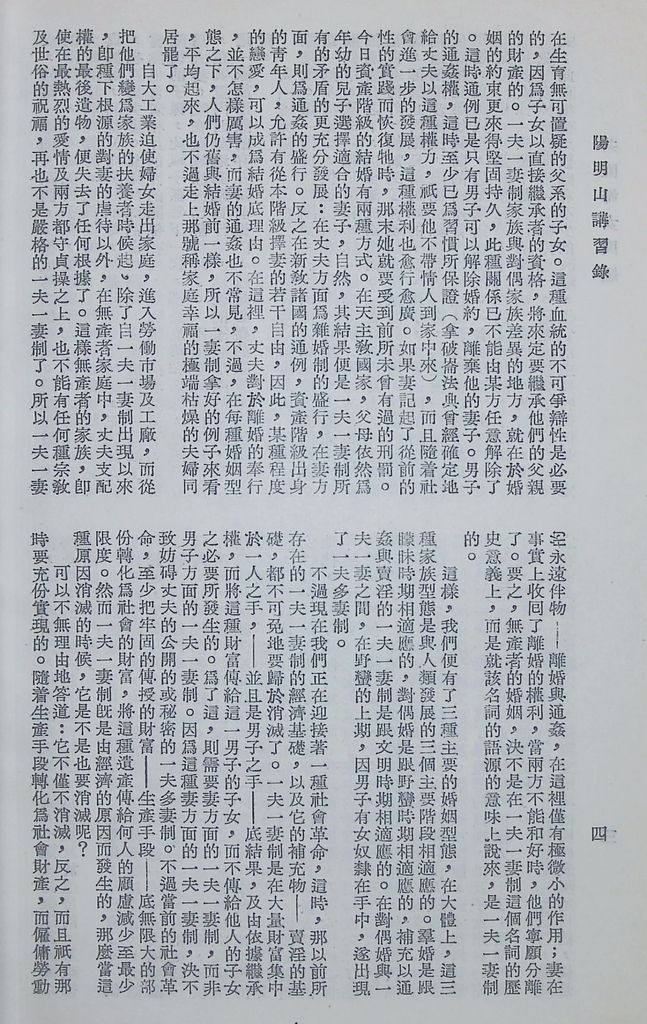 陽明山講習錄
四
在生育無可置疑的父系的子女。這種血統的不可爭辯性是必要
的，因爲子女以直接繼承者的資格，將來定要繼承他們的父親
的財產的。一夫一妻制家族與對偶家族差異的地方，就在於婚
姻的約束更來得堅固持久，此種關係已不能由某方任意解除了
。這時通例已是只有男子可以解除婚約，離棄他的妻子。男子
的通姦權，這時至少已爲習慣所保證（拿破崙法典曾經確定地
給丈夫以這種權力，祇要他不帶情人到家中來），而且隨着社
會進一步的發展，這種權利也愈行愈廣。如果妻記起了從前的
性的實踐而恢復牠時，那末她就要受到前所未曾有過的刑罰。
今日資產階級的結婚有兩種方式。在天主敎國家，父母依然爲
年幼的兒子選擇適合的妻子，自然，其結果便是一夫一妻制所
有的矛盾的更充分發展：在丈夫方面爲雜婚制的盛行，在妻方
面，則爲通姦的盛行。反之在新敎諸國的通例，資產階級出身
的靑年人，允許有從本階級擇妻的若干自由，因此，某種程度
的戀愛，可以成爲結婚底理由。在這裡，丈夫對於離婚的奉行
，並不怎樣厲害，而妻的通姦也不常見，不過，在每種婚姻型
態之下，人們仍舊與結婚前一樣，所以一夫一妻制拿好的例子來看
，平均起來，也不過走上那號稱家庭幸福的極端枯燥的夫婦同
居罷了。
自大工業迫使婦女走出家庭，進入勞働市場及工廠，而從
把他們變爲家族的扶養者時候起，除了自一夫一妻制出現以來
，卽種下根源的對妻的虐待以外，在無產者家庭中，丈夫支配
權的最後遺物，便失去了任何根據了。這樣無產者的家族，卽
使在最熱烈的愛情及兩方都守貞操之上，也不能有任何種宗敎
及世俗的祝福，再也不是嚴格的一夫一妻制了。所以一夫一妻
制永遠伴物——離婚與通姦，在這裡僅有極微小的作用；妻在
事實上收回了離婚的權利，當兩方不能和好時，他們寧願分離
了。要之，無產者的婚姻，決不是在一夫一妻制這個名詞的歷
史意義上，而是就該名詞的語源的意味上說來，是一夫一妻制
的。
這樣，我們便有了三種主要的婚姻型態，在大體上，這三
種家族型態是與人類發展的三個主要階段相適應的。羣婚是跟
矇昧時期相適應的，對偶婚是跟野蠻時期相適應的，補充以通
姦與賣淫的一夫一妻制是跟文明時期相適應的。在對偶婚與一
夫一妻之間，在野蠻的上期，因男子有女奴隸在手中，遂出現
了一夫多妻制。
不過現在我們正在迎接著一種社會革命，這時，那以前所
存在的一夫一妻制的經濟基礎，以及它的補充物——賣淫的基
礎，都不可免地要歸於消滅了。一夫一妻制是在大量財富集中
於一人之手，——並且是男子之手——底結果，及由依據繼承
權，而將這種財富傳給這一男子的子女，而不傳給他人的子女
之必要所發生的。爲了這，則需要妻方面的一夫一妻制，而非
男子方面的一夫一妻制。因爲這種妻方面的一夫一妻制，決不
致妨碍丈夫的公開的或秘密的一夫多妻制。不過當前的社會革
命，至少把牢固的傳授的財富——生產手段——底無限大的部
份轉化爲社會的財富，將這種遺產傳給何人的顧慮減少至最少
限度。然而一夫一妻制旣是由經濟的原因而發生的，那麼當這
種原因消滅的時候，它是不是也要消滅呢？
可以不無理由地答道：它不僅不消滅，反之，而且祇有那
時要充份實現的。隨着生產手段轉化爲社會財產，而僱傭勞動